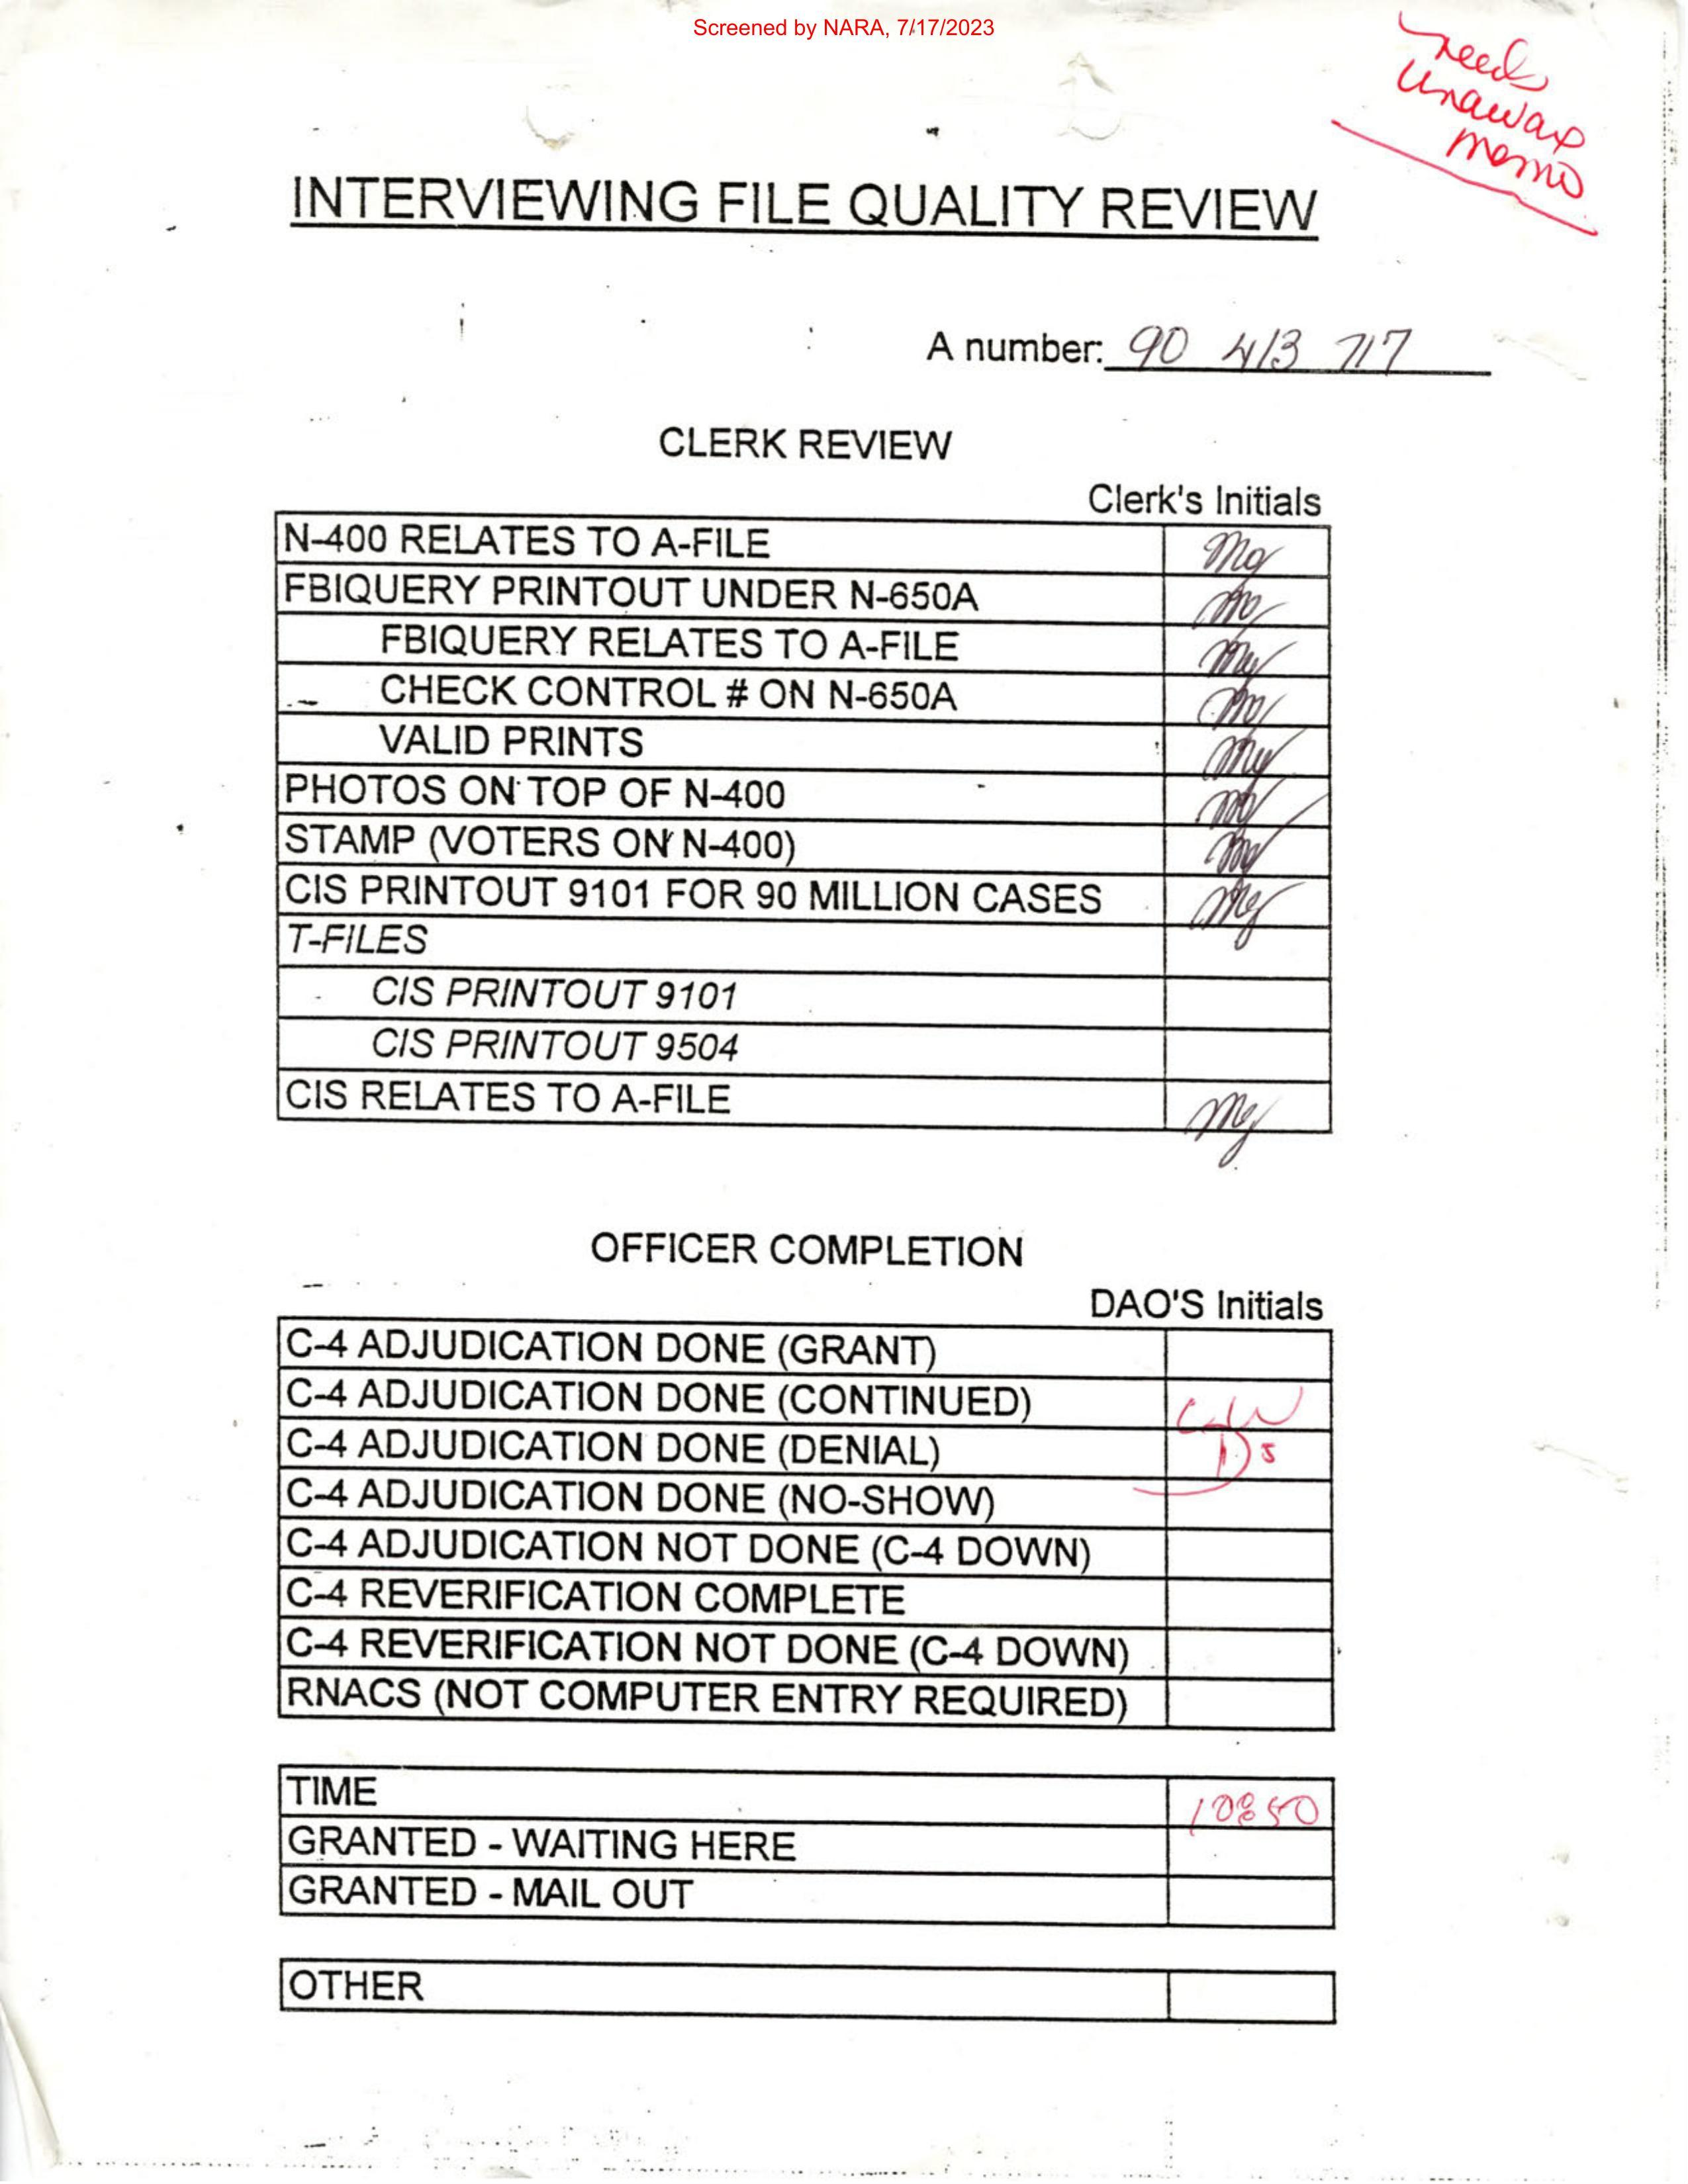 Screened by NARA, 7/17/2023
need
unaware
memo
INTERVIEWING FILE QUALITY REVIEW
A number: 90 413 717
CLERK REVIEW
Clerk's Initials
N-400 RELATES TO A-FILE
FBIQUERY PRINTOUT UNDER N-650A
FBIQUERY RELATES TO A-FILE
CHECK CONTROL # ON N-650A
VALID PRINTS
PHOTOS ON TOP OF N-400
STAMP (VOTERS ON N-400)
CIS PRINTOUT 9101 FOR 90 MILLION CASES
T-FILES
CIS PRINTOUT 9101
CIS PRINTOUT 9504
CIS RELATES TO A-FILE
OFFICER COMPLETION
DAO'S Initials
C-4 ADJUDICATION DONE (GRANT)
C-4 ADJUDICATION DONE (CONTINUED)
C-4 ADJUDICATION DONE (DENIAL)
C-4 ADJUDICATION DONE (NO-SHOW)
C-4 ADJUDICATION NOT DONE (C-4 DOWN)
C-4 REVERIFICATION COMPLETE
C-4 REVERIFICATION NOT DONE (C-4 DOWN)
RNACS (NOT COMPUTER ENTRY REQUIRED)
TIME 10:50
GRANTED - WAITING HERE
GRANTED - MAIL OUT
OTHER